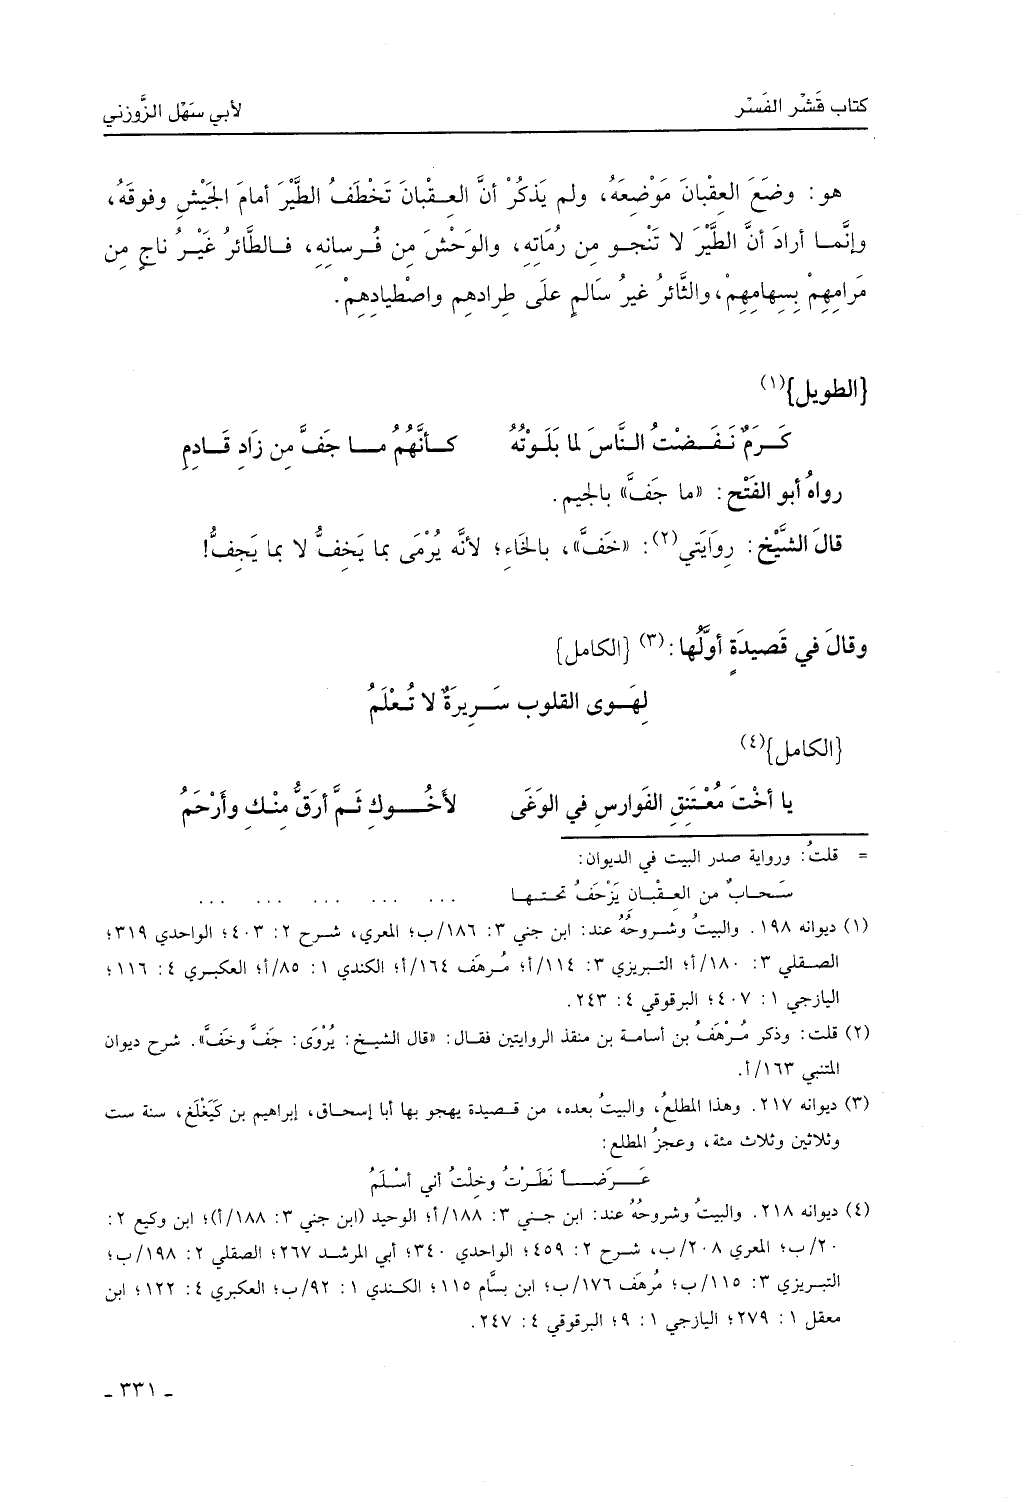 كتاب قَشْر الفَسْر
لأبي سَهْل الزَّوزني
هو: وضَعَ العِقْبانَ مَوْضِعَهُ، ولم يَذكُرْ أنَّ العِقْبانَ تَخْطَفُ الطَّيْرَ أمامَ الجَيْشِ وفوقَهُ،
وإنَّما أرادَ أنَّ الطَّيْرَ لا تَنْجو من رُمَاتِهِ، والوَحْشَ من فُرسانِهِ، فالطَّائرُ غَيْرُ ناجٍ مِن
مَرامِهِمْ بِسِهامِهِمْ، والثَّائرُ غيرُ سَالمٍ علَى طِرادهِم واصْطيادِهِمْ.
{الطويل}(١)
كَرَمٌ نَفَضْتُ النَّاسَ لما بَلَوْتُهُ كأنَّهُمُ ما جَفَّ من زَادِ قَادِمِ
رواهُ أبو الفَتْح: «ما جَفَّ» بالجيم.
قالَ الشَّيْخ: رِوَايَتي(٢): «خَفَّ»، بالخَاءِ؛ لأنَّه يُرْمَى بما يَخِفُّ لا بما يَجِفُّ!
وقالَ في قَصِيدَةٍ أوَّلُها:(٣) {الكامل}
لِهَوى القلوب سَرِيرَةٌ لا تُعْلَمُ
{الكامل}(٤)
يا أخْتَ مُعْتَنِقِ الفَوارسِ في الوَغَى لأَخُوكِ ثَمَّ أرَقُّ مِنْكِ وأَرْحَمُ
= قلتُ: ورواية صدر البيت في الديوان:
سَحابٌ من العِقْبان يَزْحَفُ تحتها ... ... ... ... ...
(١) ديوانه ١٩٨. والبيتُ وشروحُهُ عند: ابن جني ٣: ١٨٦/ب؛ المعري، شرح ٢: ٤٠٣؛ الواحدي ٣١٩؛
الصقلي ٣: ١٨٠/أ؛ التبريزي ٣: ١١٤/أ؛ مُرهَف ١٦٤/أ؛ الكندي ١: ٨٥/أ؛ العكبري ٤: ١١٦؛
اليازجي ١: ٤٠٧؛ البرقوقي ٤: ٢٤٣.
(٢) قلت: وذكر مُرْهَفُ بن أسامة بن منقذ الروايتين فقال: «قال الشيخ: يُرْوَى: جَفَّ وخَفَّ». شرح ديوان
المتنبي ١٦٣/أ.
(٣) ديوانه ٢١٧. وهذا المطلعُ، والبيتُ بعده، من قصيدة يهجو بها أبا إسحاق، إبراهيم بن كَيَغْلَغ، سنة ست
وثلاثين وثلاث مئة، وعجزُ المطلع:
عَرَضاً نَظَرْتُ وخِلْتُ أني أسْلَمُ
(٤) ديوانه ٢١٨. والبيتُ وشروحُهُ عند: ابن جني ٣: ١٨٨/أ؛ الوحيد (ابن جني ٣: ١٨٨/أ)؛ ابن وكيع ٢:
٢٠/ب؛ المعري ٢٠٨/ب، شرح ٢: ٤٥٩؛ الواحدي ٣٤٠؛ أبي المرشد ٢٦٧؛ الصقلي ٢: ١٩٨/ب؛
التبريزي ٣: ١١٥/ب؛ مُرهَف ١٧٦/ب؛ ابن بسَّام ١١٥؛ الكندي ١: ٩٢/ب؛ العكبري ٤: ١٢٢؛ ابن
معقل ١: ٢٧٩؛ اليازجي ١: ٩؛ البرقوقي ٤: ٢٤٧.
- ٣٣١ -